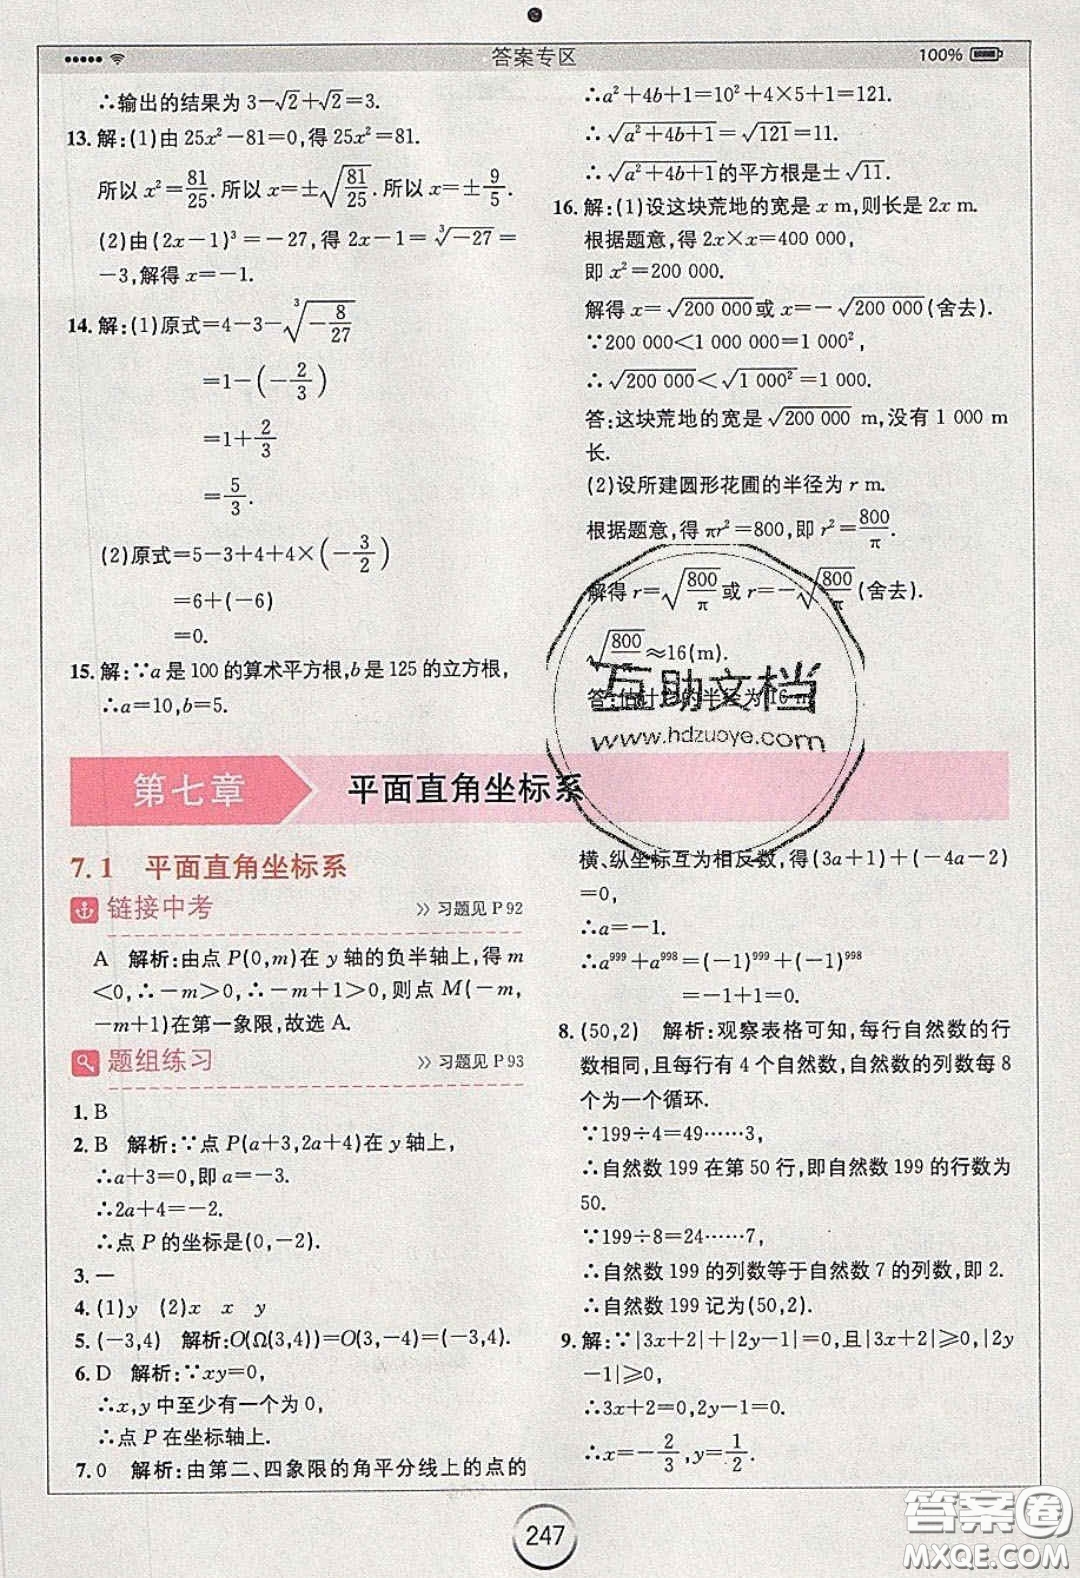 答案专区
100%
∴输出的结果为 3-√2+√2=3.
13. 解:(1)由 25x²-81=0,得 25x²=81.
所以 x²=81/25.所以 x=±√(81/25).所以 x=±9/5.
(2)由(2x-1)³=-27,得 2x-1=³√-27=
-3,解得 x=-1.
14. 解:(1)原式=4-3-³√(-8/27)
=1-(-2/3)
=1+2/3
=5/3.
(2)原式=5-3+4+4×(-3/2)
=6+(-6)
=0.
15. 解:∵a 是 100 的算术平方根,b 是 125 的立方根,
∴a=10,b=5.
∴a²+4b+1=10²+4×5+1=121.
∴√(a²+4b+1)=√121=11.
∴√(a²+4b+1)的平方根是±√11.
16. 解:(1)设这块荒地的宽是 x m,则长是 2x m.
根据题意,得 2x×x=400 000,
即 x²=200 000.
解得 x=√200 000或 x=-√200 000(舍去).
∵200 000<1 000 000=1 000²,
∴√200 000<√1 000²=1 000.
答:这块荒地的宽是√200 000 m,没有 1 000 m
长.
(2)设所建圆形花圃的半径为 r m.
根据题意,得 πr²=800,即 r²=800/π.
解得 r=√(800/π)或 r=-√(800/π)(舍去).
√(800/π)≈16(m).
答:估计的半径为 16 m
互助文档
www.hdzuoye.com
第七章 平面直角坐标系
7.1 平面直角坐标系
链接中考 >>习题见 P92
A 解析:由点 P(0,m)在 y 轴的负半轴上,得 m
<0,∴-m>0,∴-m+1>0,则点 M(-m,
-m+1)在第一象限,故选 A.
题组练习 >>习题见 P93
1. B
2. B 解析:∵点 P(a+3,2a+4)在 y 轴上,
∴a+3=0,即 a=-3.
∴2a+4=-2.
∴点 P 的坐标是(0,-2).
3. 一
4. (1)y (2)x x y
5. (-3,4) 解析:O(Ω(3,4))=O(3,-4)=(-3,4).
6. D 解析:∵xy=0,
∴x,y 中至少有一个为 0,
∴点 P 在坐标轴上.
7. 0 解析:由第二、四象限的角平分线上的点的
横、纵坐标互为相反数,得(3a+1)+(-4a-2)
=0,
∴a=-1.
∴a⁹⁹⁹+a⁹⁹⁸=(-1)⁹⁹⁹+(-1)⁹⁹⁸
=-1+1=0.
8. (50,2) 解析:观察表格可知,每行自然数的行
数相同,且每行有 4 个自然数,自然数的列数每 8
个为一个循环.
∵199÷4=49……3,
∴自然数 199 在第 50 行,即自然数 199 的行数为
50.
∵199÷8=24……7,
∴自然数 199 的列数等于自然数 7 的列数,即 2.
∴自然数 199 记为(50,2).
9. 解:∵|3x+2|+|2y-1|=0,且|3x+2|≥0,|2y
-1|≥0,
∴3x+2=0,2y-1=0.
∴x=-2/3,y=1/2.
247
答案圈
MXQE.COM